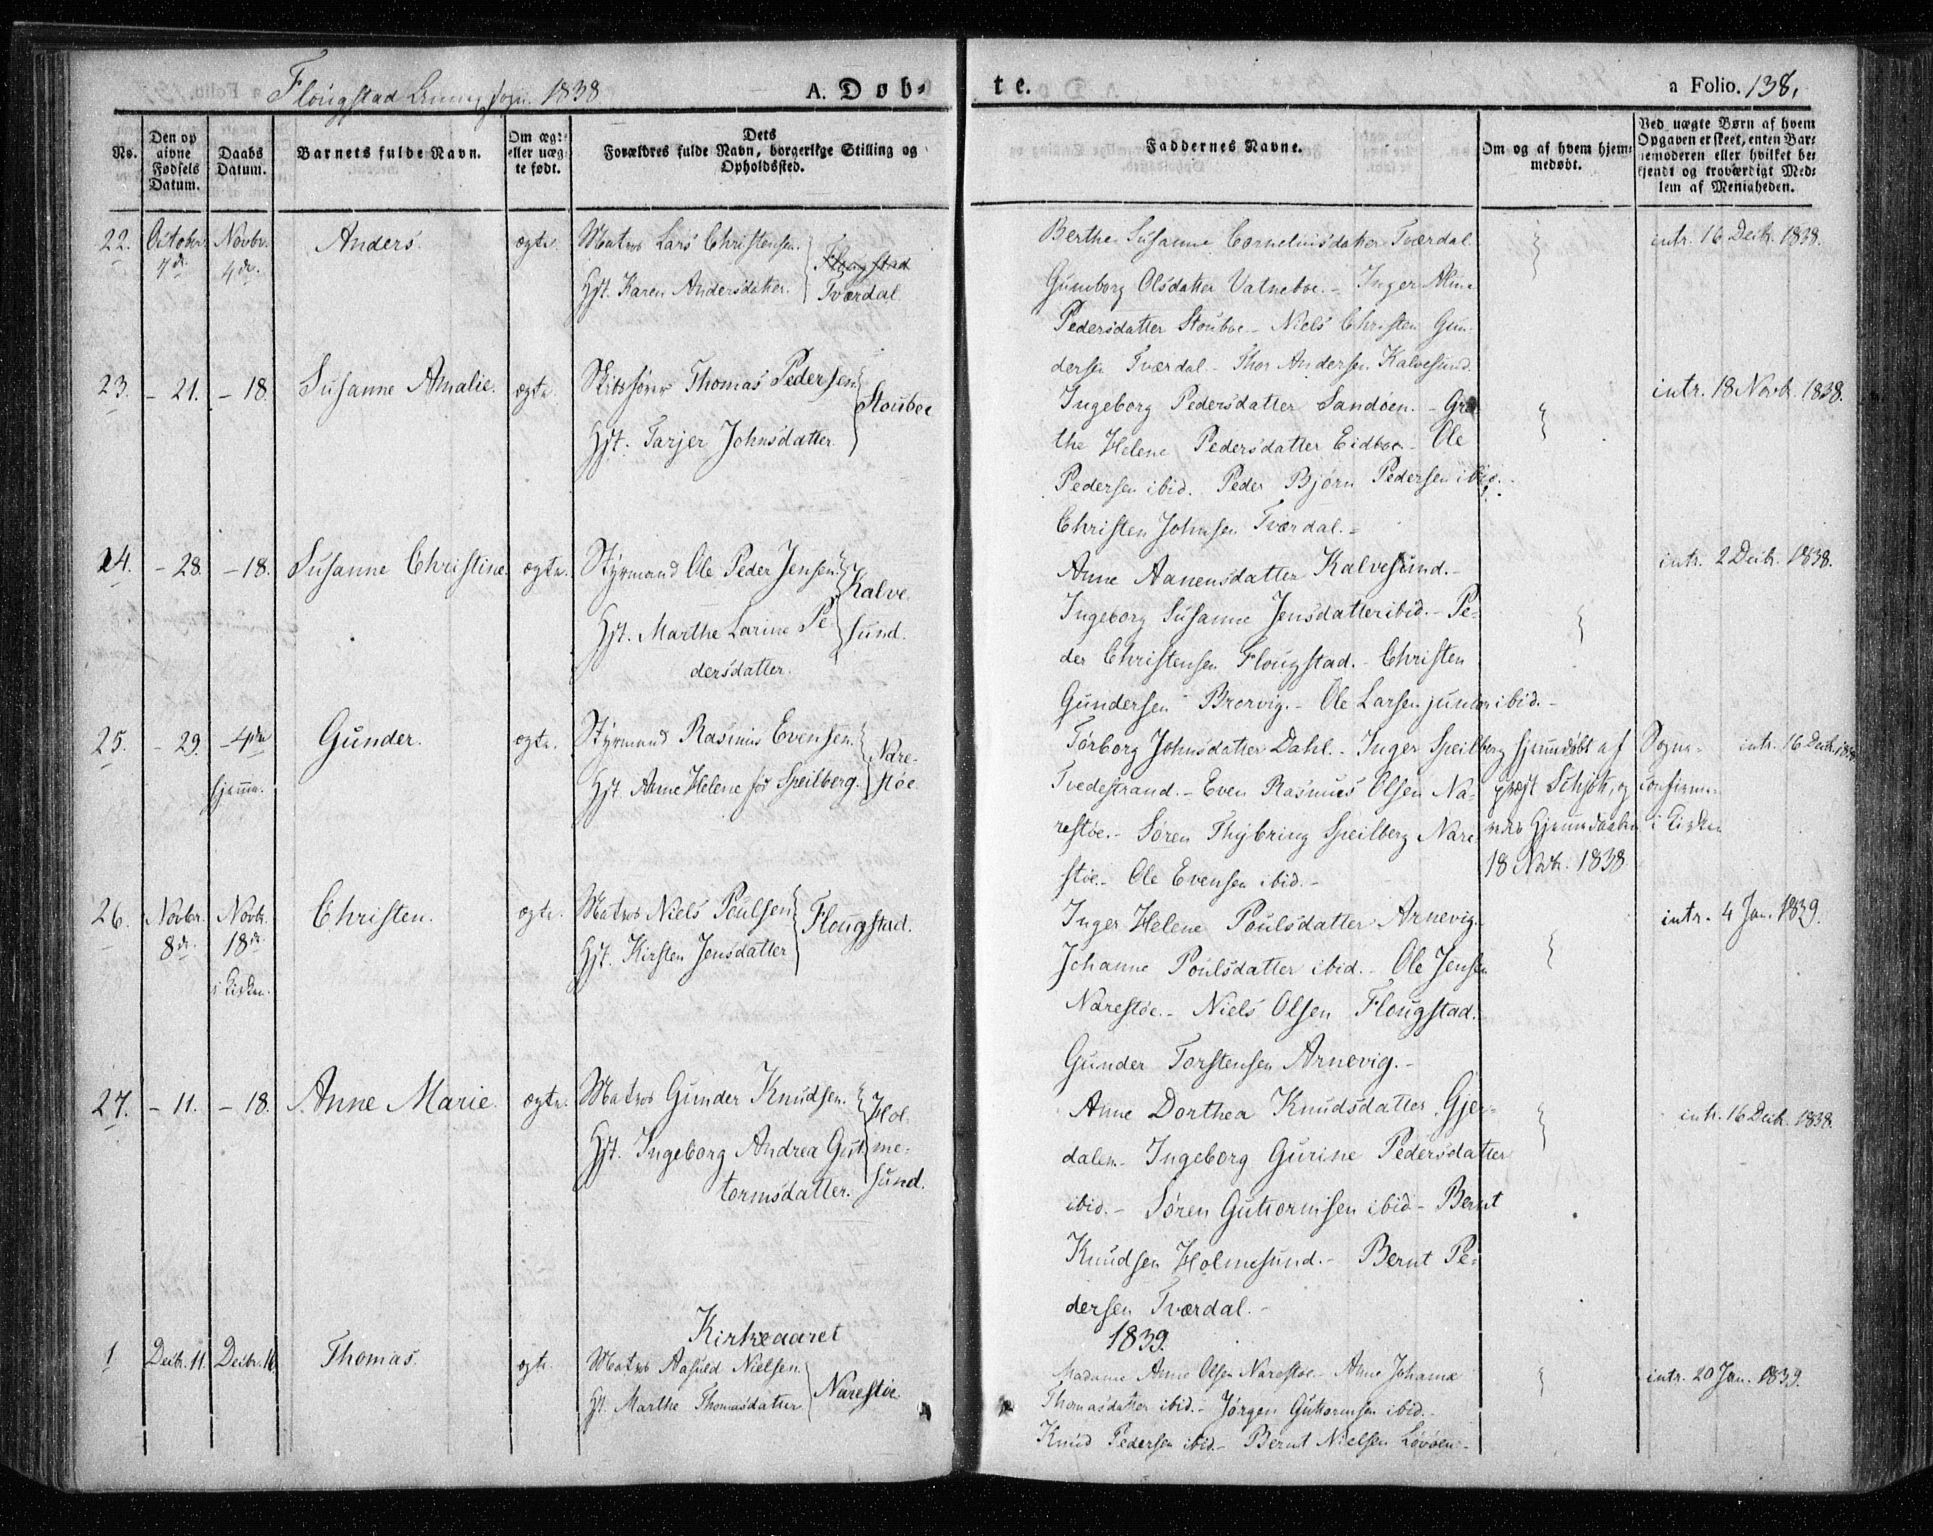 Flougstad 1838
A. Døb-
te.
a Folio. 138.
No.
Den op
givne
Fødsels
Datum.
Daabs
Datum.
Barnets fulde Navn.
Om æg-
eller uæg
te født.
Dets
Forældres fulde Navn, borgerlige Stilling og
Opholdssted.
Faddernes Navne.
Om og af hvem hjem-
medøbt.
Ved uægte Børn af hvem
Opgaven er skeet, enten Bar-
nemoderen eller hvilket be-
kjendt og troværdigt Med-
lem af Menigheden.
22. October 4de Novbr. 4de. Anders. ægte.
Matros Lars Christensen.
Hst. Karen Andersdatter.
Flougstad
Tværdal.
Berthe Susanne Corneliusdatter Tværdal
Gunborg Olsdatter Vatneboe. - Inger Aline
Pedersdatter Stouboe - Niels Christen Gun-
dersen Tværdal - Thor Andersen Kalvesund.
intr. 16 Decbr. 1838.
23. - 21. - 18. Susanne Amalie. ægte.
Thomas Pedersen
Hst. Tarjer Johnsdatter.
Stouboe
Ingeborg Pedersdatter Sandøen. - Gre
the Helene Pedersdatter Eidboe - Ole
Pedersen ibid. Peder Bjørn Pedersen ibid.
Christen Johnsen Tværdal. -
intr. 18 Novbr. 1838.
24. - 28. - 18. Susanne Christine. ægte.
Styrmand Ole Peder Jensen.
Hst. Marthe Larine Pe
dersdatter.
Kalve
sund.
Anne Aanensdatter Kalvesund. -
Ingeborg Susanne Jensdatter ibid. - Pe-
der Christensen Flougstad. - Christen
Gundersen Brorvig. - Ole Larsen junior ibid. -
intr. 2 Decbr. 1838.
25. - 29. - 4de hjemme. Gunder. ægte.
Styrmand Rasmus Evensen.
Hst. Anne Helene før Speilberg.
Nare-
støe
Torborg Johnsdatter Dahl. - Inger Speilberg
Tvedestrand. - Even Rasmus Olsen Na-
restøe. - Søren Thybring Speilberg Nare-
støe. - Ole Evensen ibid. -
hjemdøbt af Sogne-
præst Schjøth, og confirme-
res Hjemdaaben i Kirken
18 Novbr. 1838
intr. 16 Decbr. 1838
26. Novbr. 8de. Novbr. 18de i Kirken. Christen. ægte.
Matros Niels Poulsen
Hst. Kirsten Jensdatter
Flougstad.
Inger Helene Poulsdatter Arnevig. -
Johanne Poulsdatter ibid. - Ole Jensen
Narestøe. - Niels Olsen Flougstad. -
Gunder Torstensen Arnevig. -
intr. 4 Jan. 1839.
27. - 11. - 18. Anne Marie. ægte.
Matros Gunder Knudsen.
Hst. Ingeborg Andrea Gut
tormsdatter.
Hol-
me-
sund.
Anne Dorthea Knudsdatter Gjer-
dalen - Ingeborg Gurine Pedersdatter
ibid. - Søren Guttormsen ibid - Bernt
Knudsen Holmesund. - Bernt Pe-
dersen Tværdal. -
intr. 16 Decbr. 1838.
Kirkeaaret
1839.
1 Decbr. 11. Decbr. 16 Thomas. ægte
Matros Aasuld Nielsen.
Hst. Marthe Thomasdatter.
Narestøe
Madame Anne Olsen Narestøe - Anne Johanne
Thomasdatter ibid. - Jørgen Guttormsen ibid. -
Knud Pedersen ibid - Bernt Nielsen Løvøen -
intr. 20 Jan. 1839.